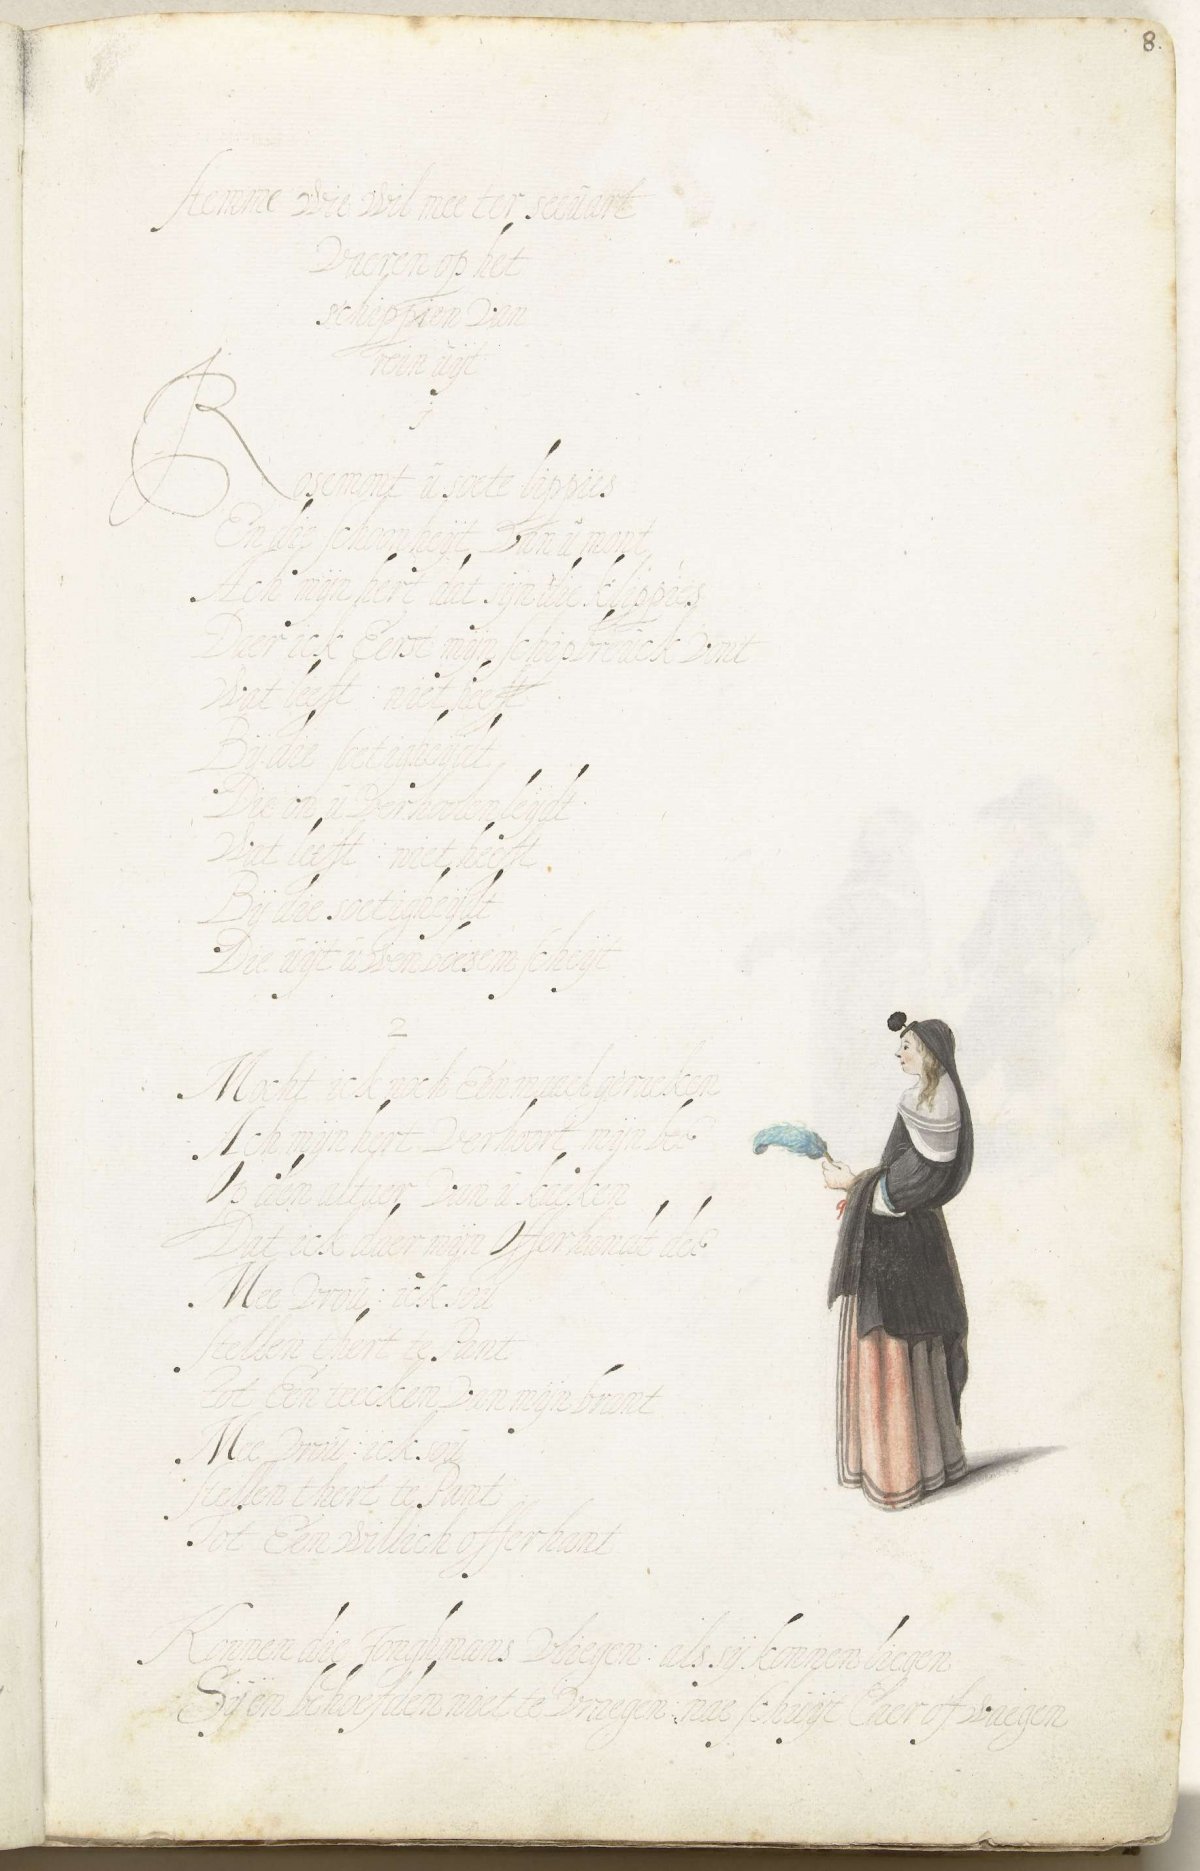 8.
stemme Wie Wil mee ter seewart
Vaeren op het
schippien Van
rein uijt
1
Rosemont u soete lippies
En die schoonheijt Van u mont
Ach mijn hert dat sijn die klippies
Daer ick Eerst mijn schipbreuck Vont
Wat leeft : niet heeft
Bij die soetigheijdt
Die in u Verhoolen leijdt
Wat leeft : niet heeft
Bij die soetigheijdt
Die uijt uWen boesem scheijt
2
Mocht ick noch Eenmael geraeken
Ach mijn hert Verhoort mijn bee
Op den altaer Van u kaeken
Dat ick daer mijn Offerhandt dee
Mee Vrou : ick sou
stellen thert te Pant
tot Een teecken Van mijn brant
Mee Vrou : ick sou
stellen thert te Pant
Tot Een Willich offerhant
Konnen die Jonghmans Vliegen : als sij konnen liegen
Sij en behoefden niet te Vraegen : nae schuijt Ther of Waegen